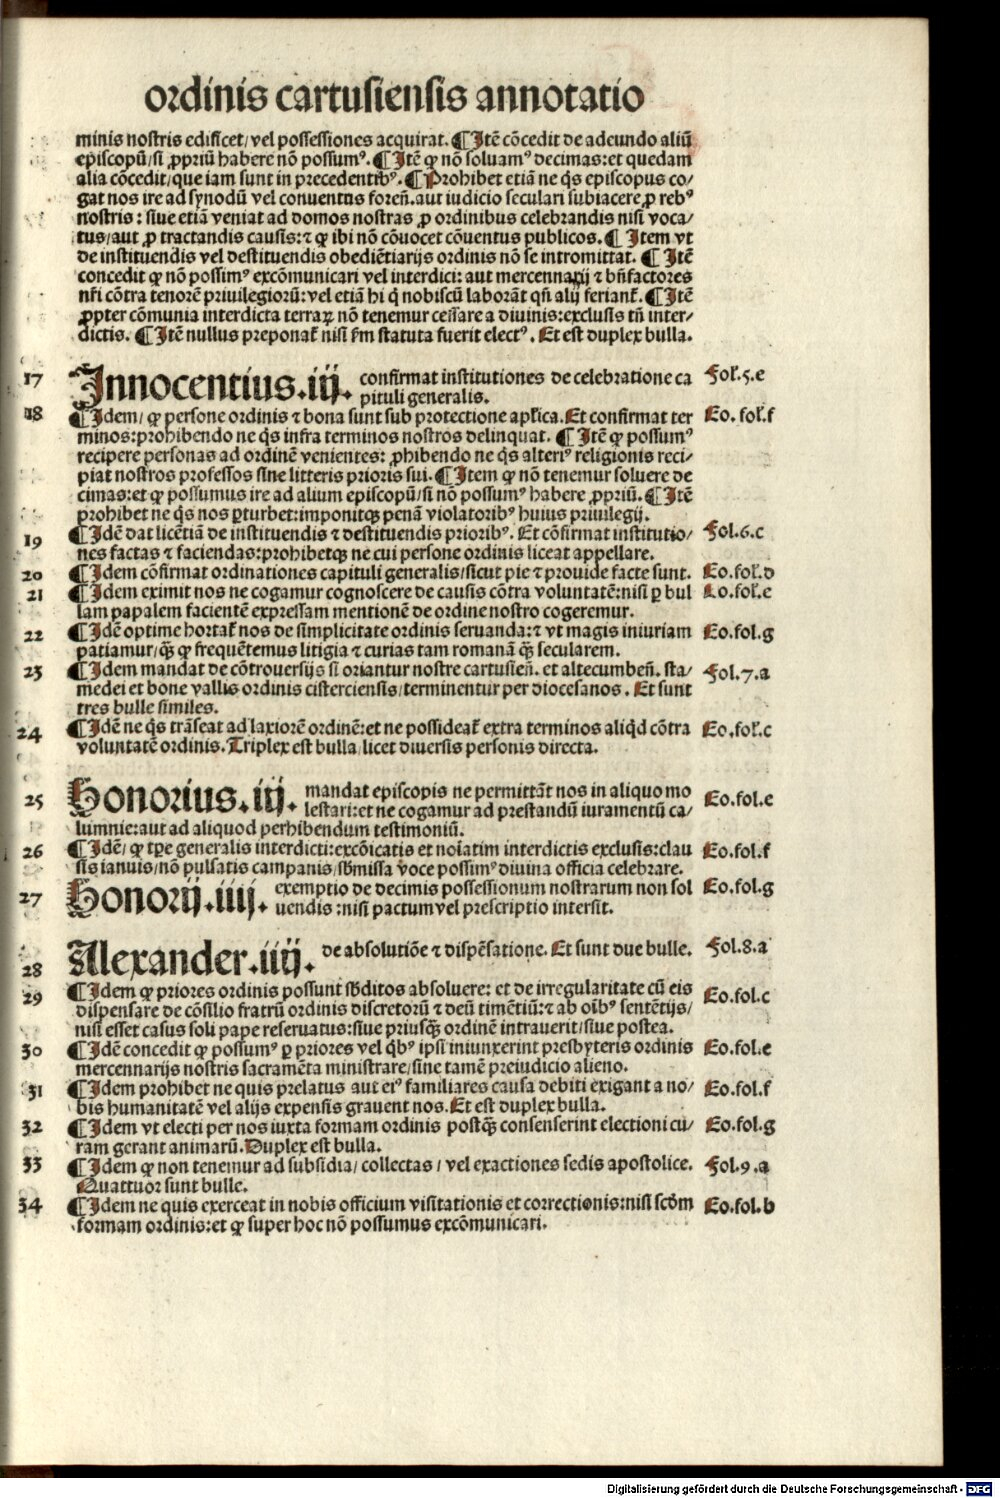 ordinis cartusiensis annotatio
minis nostris edificet/ vel possessiones acquirat. ¶ Itē cōcedit de adeundo aliū
episcopū/ si ꝓpriū habere nō possumꝰ. ¶ Itē ꝙ nō soluamꝰ decimas: et quedam
alia cōcedit/ que iam sunt in precedentibꝰ. ¶ Prohibet etiā ne q̄s episcopus co/
gat nos ire ad synodū vel conuentus foreñ. aut iudicio seculari subiacere ꝓ rebꝰ
nostris: siue etiā veniat ad domos nostras ꝓ ordinibus celebrandis nisi voca/
tus/ aut ꝓ tractandis causis: ⁊ ꝙ ibi nō cōuocet cōuentus publicos. ¶ Item vt
de instituendis vel destituendis obediētiarijs ordinis nō se intromittat. ¶ Itē
concedit ꝙ nō possimꝰ excōmunicari vel interdici: aut mercennarij ⁊ bn̄factores
nr̄i cōtra tenorē priuilegiorū: vel etiā hi q̇ nobiscū laborāt qn̄ alij ferianť. ¶ Itē
ꝓpter cōmunia interdicta terraꝝ nō tenemur cessare a diuinis: exclusis tn̄ inter/
dictis. ¶ Itē nullus preponať nisi ẜm statuta fuerit electꝰ. Et est duplex bulla.
17 Innocentius.iij. confirmat institutiones de celebratione ca Fol.5.e
pituli generalis.
18 ¶ Idem/ ꝙ persone ordinis ⁊ bona sunt sub protectione aplica. Et confirmat ter Eo. fol.f
minos: prohibendo ne q̄s infra terminos nostros delinquat. ¶ Itē ꝙ possumꝰ
recipere personas ad ordinē venientes: ꝓhibendo ne q̄s alteriꝰ religionis reci/
piat nostros professos sine litteris prioris sui. ¶ Item ꝙ nō tenemur soluere de
cimas: et ꝙ possumus ire ad alium episcopū/ si nō possumꝰ habere ꝓpriū. ¶ Itē
prohibet ne q̄s nos ꝑturbet: imponitqꝫ penā violatoribꝰ huius priuilegij.
19 ¶ Idē dat licētiā de instituendis ⁊ destituendis prioribꝰ. Et cōfirmat institutio/ Fol.6.c
nes factas ⁊ faciendas: prohibetqꝫ ne cui persone ordinis liceat appellare.
20 ¶ Idem cōfirmat ordinationes capituli generalis/ sicut pie ⁊ prouide facte sunt. Eo.fol.d
21 ¶ Idem eximit nos ne cogamur cognoscere de causis cōtra voluntatē: nisi ꝑ bul Eo.fol.e
lam papalem facientē expressam mentionē de ordine nostro cogeremur.
22 ¶ Idē optime hortať nos de simplicitate ordinis seruanda: ⁊ vt magis iniuriam Eo.fol.g
patiamur/ qꝫ̄ ꝙ frequētemus litigia ⁊ curias tam romanā qꝫ̄ secularem.
23 ¶ Idem mandat de cōtrouersijs si oriantur nostre cartusieñ. et altecumbeñ. sta/ Fol.7.a
medei et bone vallis ordinis cisterciensis/ terminentur per diocesanos. Et sunt
tres bulle similes.
24 ¶ Idē ne q̄s trāseat ad laxiorē ordinē: et ne possideať extra terminos aliq̇d cōtra Eo.fol.c
voluntatē ordinis. Triplex est bulla/ licet diuersis personis directa.
25 Honorius.iij. mandat episcopis ne permittāt nos in aliquo mo Eo.fol.e
lestari: et ne cogamur ad prestandū iuramentū ca/
lumnie: aut ad aliquod perhibendum testimoniū.
26 ¶ Idē/ ꝙ tꝑe generalis interdicti: excōicatis et noīatim interdictis exclusis: clau Eo.fol.f
sis ianuis/ nō pulsatis campanis/ sb̄missa voce possimꝰ diuina officia celebrare.
27 Honorij.iiij. exemptio de decimis possessionum nostrarum non sol Eo.fol.g
uendis: nisi pactum vel prescriptio intersit.
28 Alexander.iiij. de absolutiōe ⁊ dispēsatione. Et sunt due bulle. Fol.8.a
29 ¶ Idem ꝙ priores ordinis possunt sb̄ditos absoluere: et de irregularitate cū eis Eo.fol.c
dispensare de cōsilio fratrū ordinis discretorū ⁊ deū timētiū: ⁊ ab oībꝰ sententijs/
nisi esset casus soli pape reseruatus: siue priusqꝫ̄ ordinē intrauerit/ siue postea.
30 ¶ Idē concedit ꝙ possumꝰ ꝑ priores vel q̇bꝰ ipsi iniunxerint presbyteris ordinis Eo.fol.e
mercennarijs nostris sacramēta ministrare/ sine tamē preiudicio alieno.
31 ¶ Idem prohibet ne quis prelatus aut eiꝰ familiares causa debiti exigant a no/ Eo.fol.f
bis humanitatē vel alijs expensis grauent nos. Et est duplex bulla.
32 ¶ Idem vt electi per nos iuxta formam ordinis postqꝫ̄ consenserint electioni cu/ Eo.fol.g
ram gerant animarū. Duplex est bulla.
33 ¶ Idem ꝙ non tenemur ad subsidia/ collectas/ vel exactiones sedis apostolice. Fol.9.a
Quattuor sunt bulle.
34 ¶ Idem ne quis exerceat in nobis officium visitationis et correctionis: nisi scd̄m Eo.fol.b
formam ordinis: et ꝙ super hoc nō possumus excōmunicari.
Digitalisierung gefördert durch die Deutsche Forschungsgemeinschaft - DFG